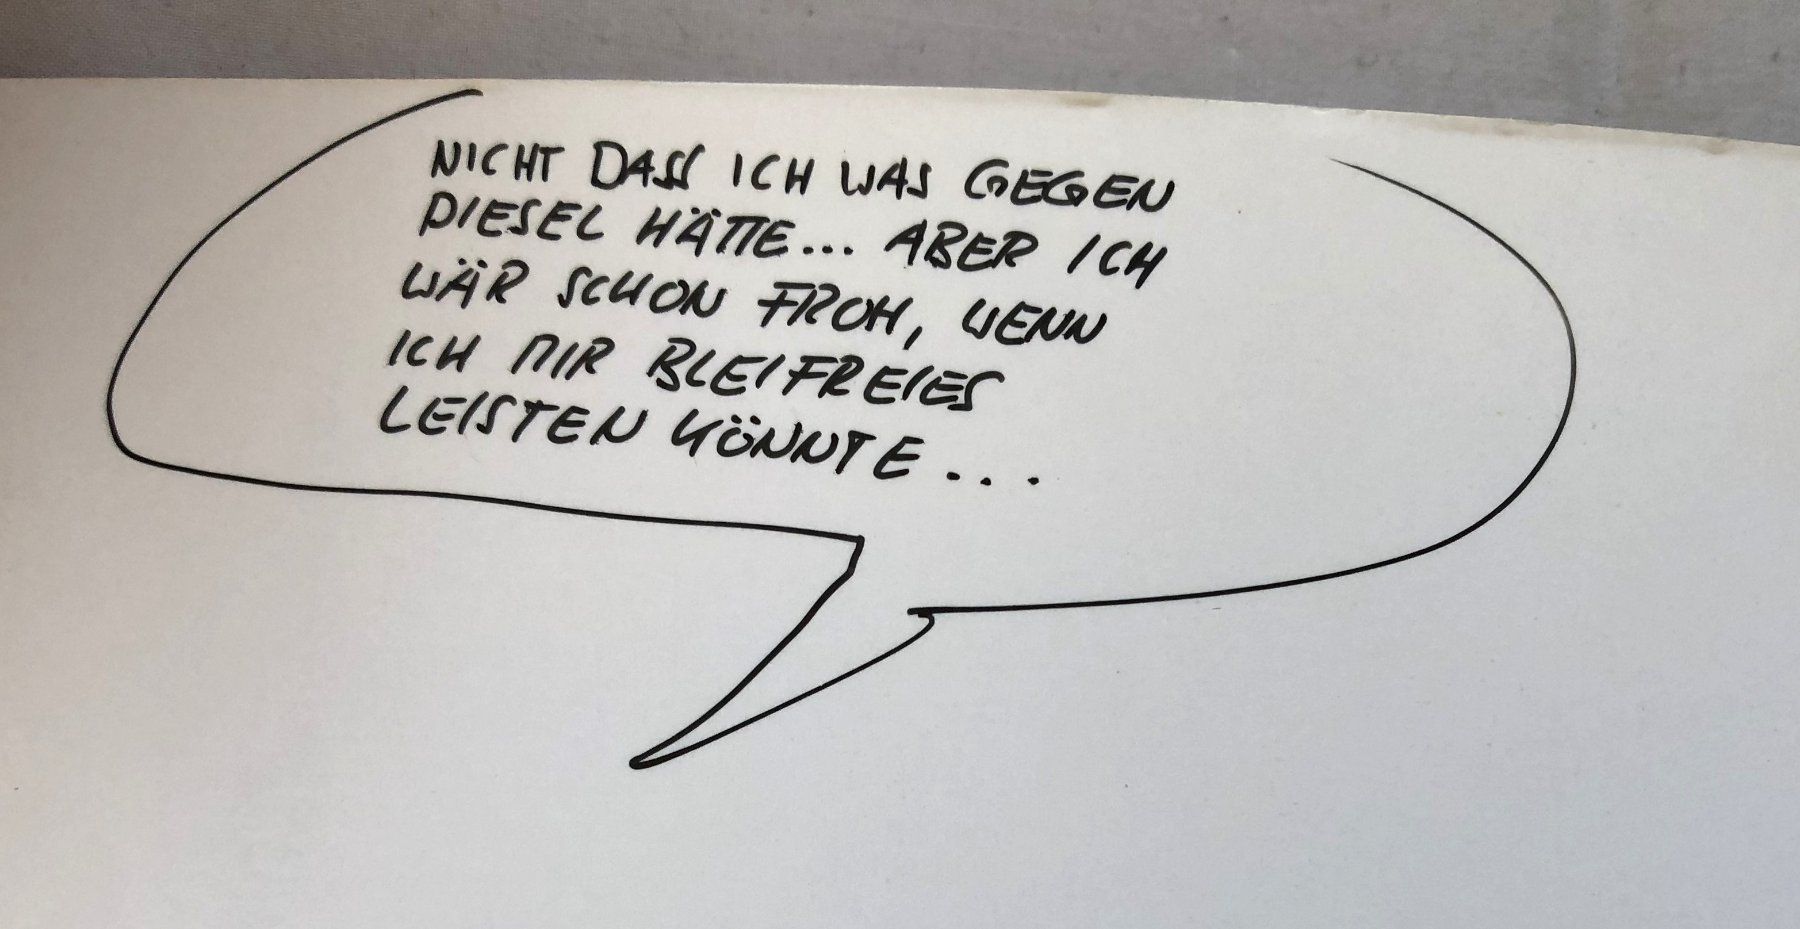 NICHT DASS ICH WAS GEGEN
DIESEL HÄTTE... ABER ICH
WÄR SCHON FROH, WENN
ICH MIR BLEIFREIES
LEISTEN KÖNNTE...